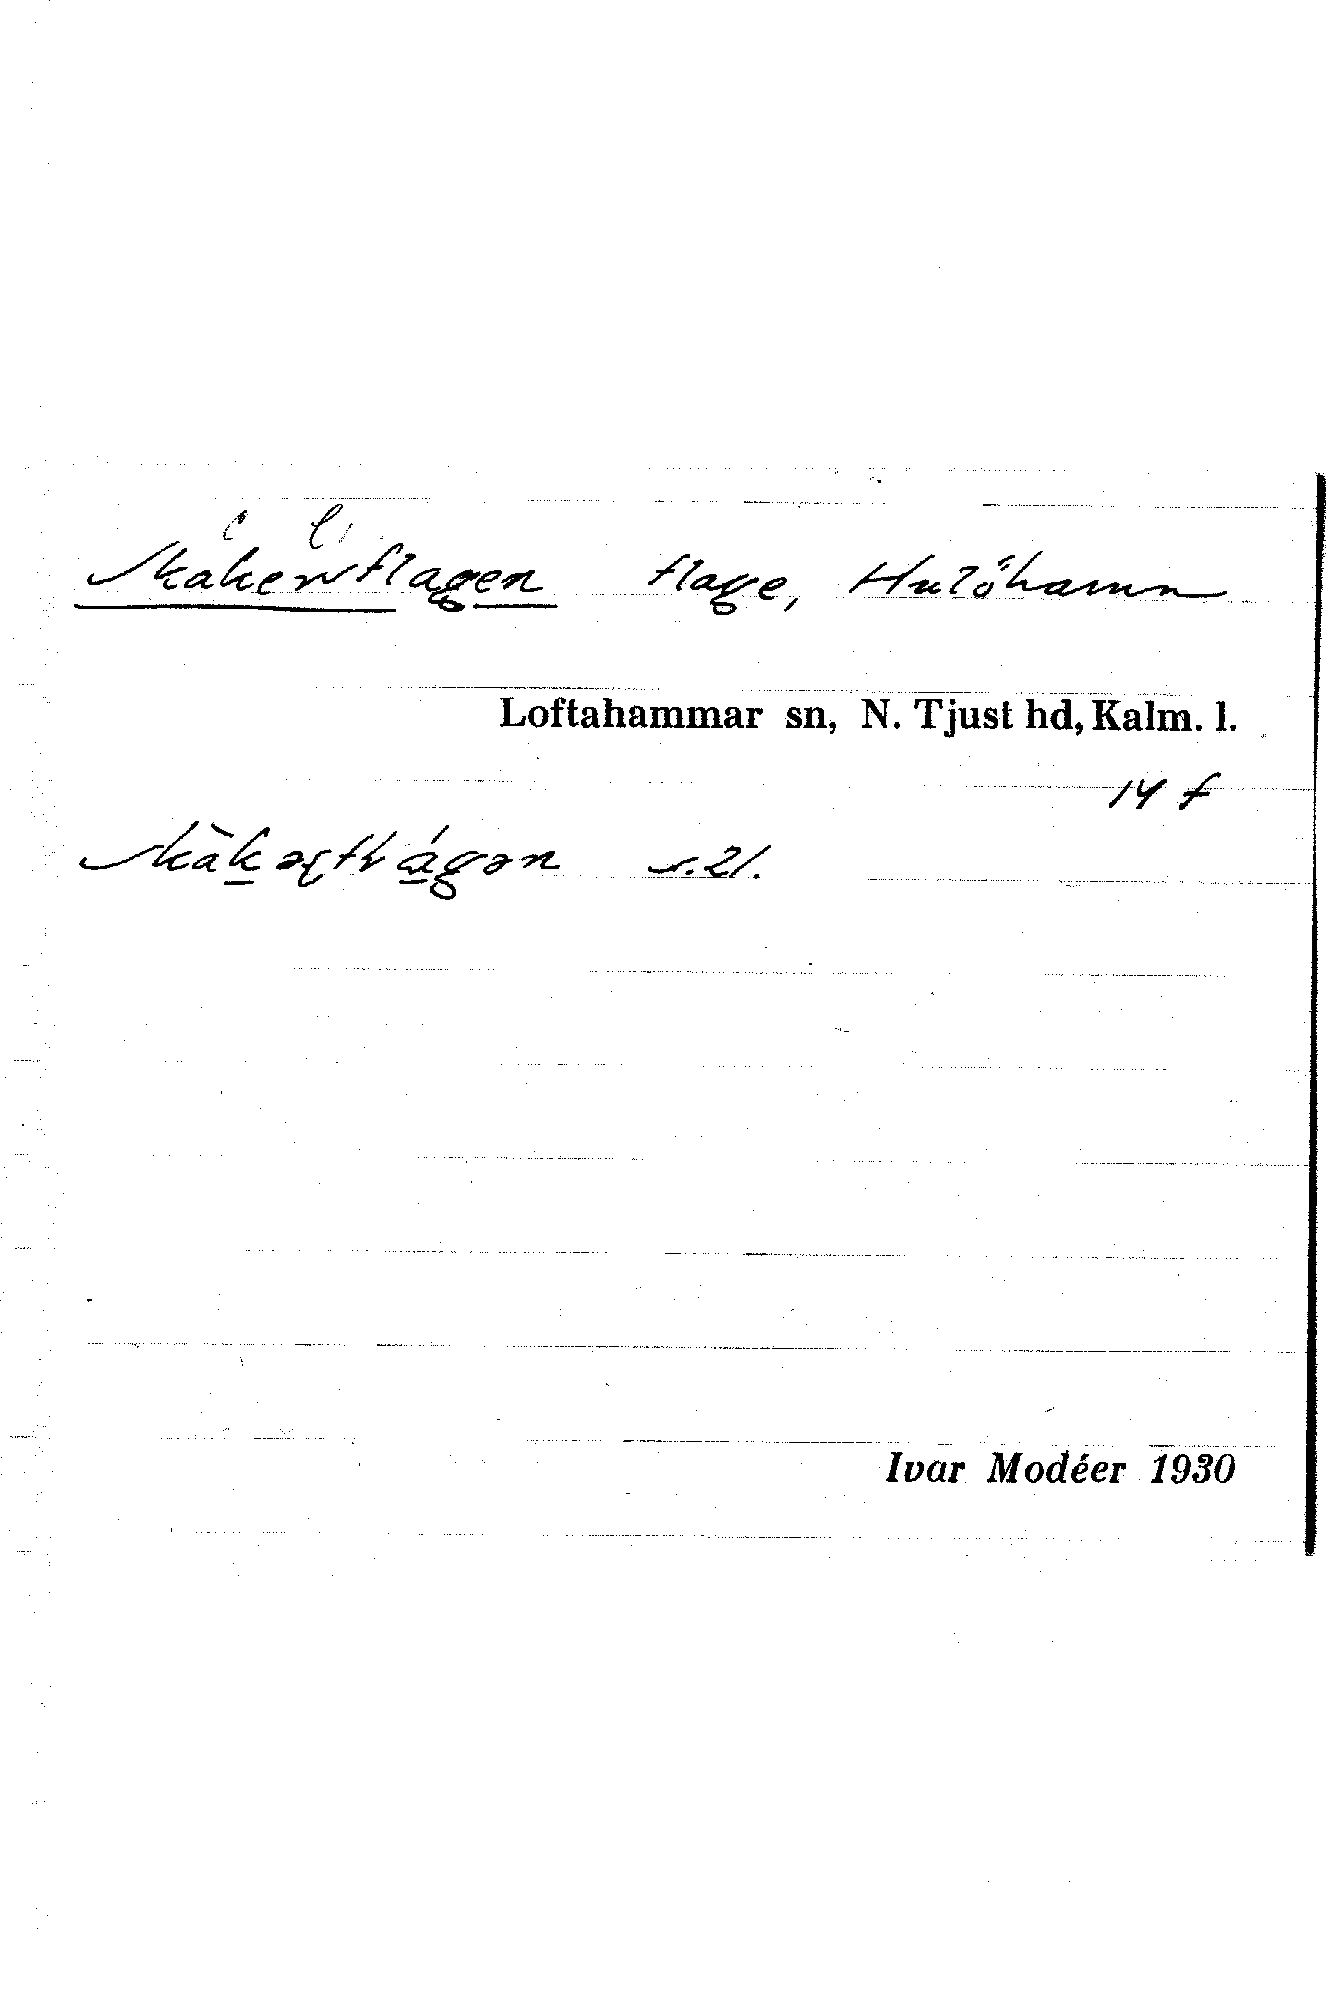 Skakerflagen flage, Hulöhamn
Loftahammar sn, N. Tjust hd, Kalm. l.
14 f
s. 21.
Ivar Modéer 1930